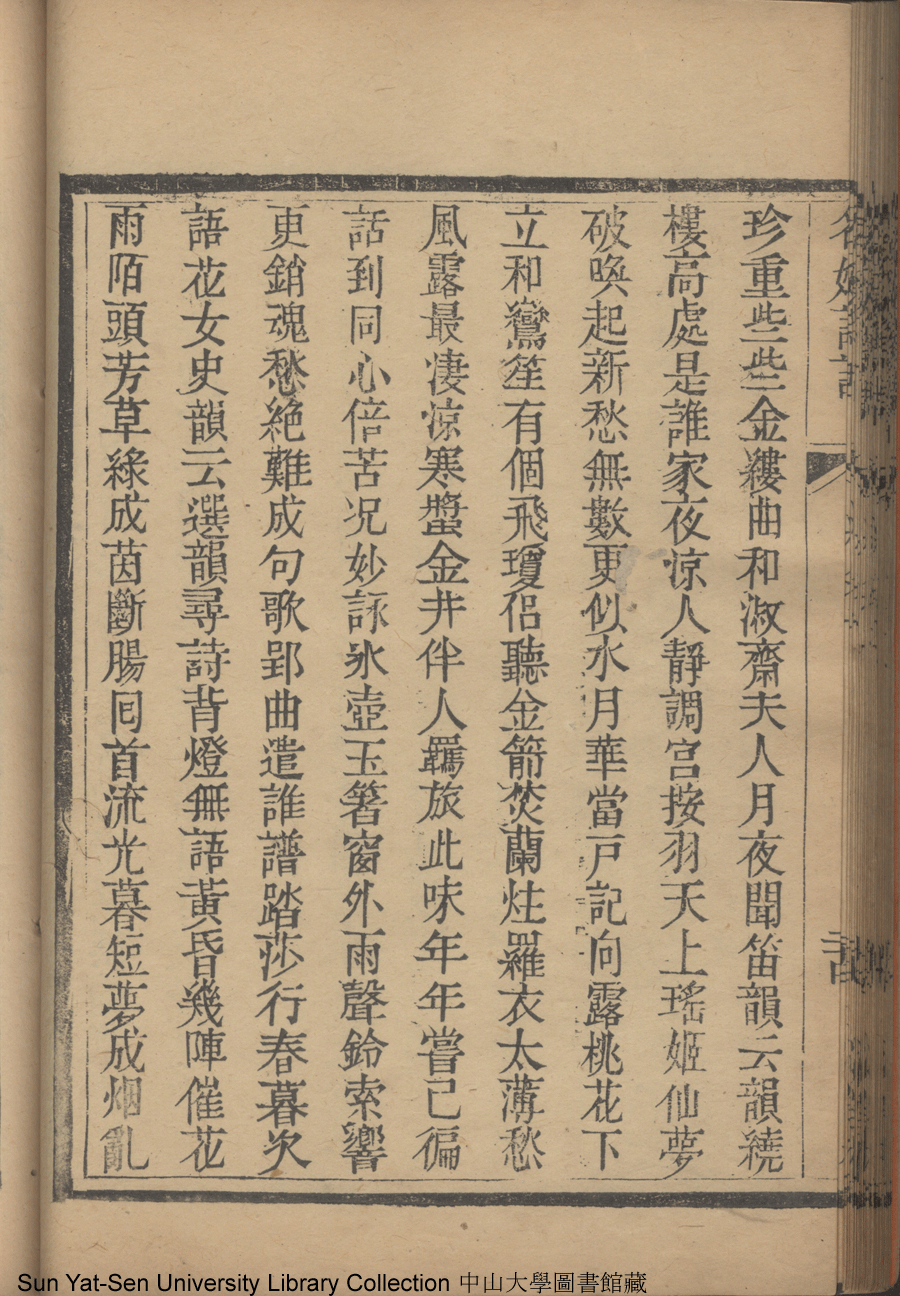 珍重些些金縷曲和淑齋夫人月夜聞笛韻云韻繞
樓高處是誰家夜涼人靜調宮按羽天上瑤姬仙夢
破喚起新愁無數更似水月華當戸記向露桃花下
立和鸞笙有個飛瓊侶聽金箭焚蘭炷羅衣太薄愁
風露最凄涼寒螿金井伴人羈旅此味年年嘗已徧
話到同心倍苦况妙詠氷壺玉箸窗外雨聲鈴索響
更銷魂愁絶難成句歌郢曲遣誰譜踏莎行春暮次
語花女史韻云選韻尋詩背燈無語黃昏幾陣催花
雨陌頭芳草綠成茵斷腸囘首流光暮短夢成烟亂
Sun Yat-Sen University Library Collection 中山大學圖書館藏